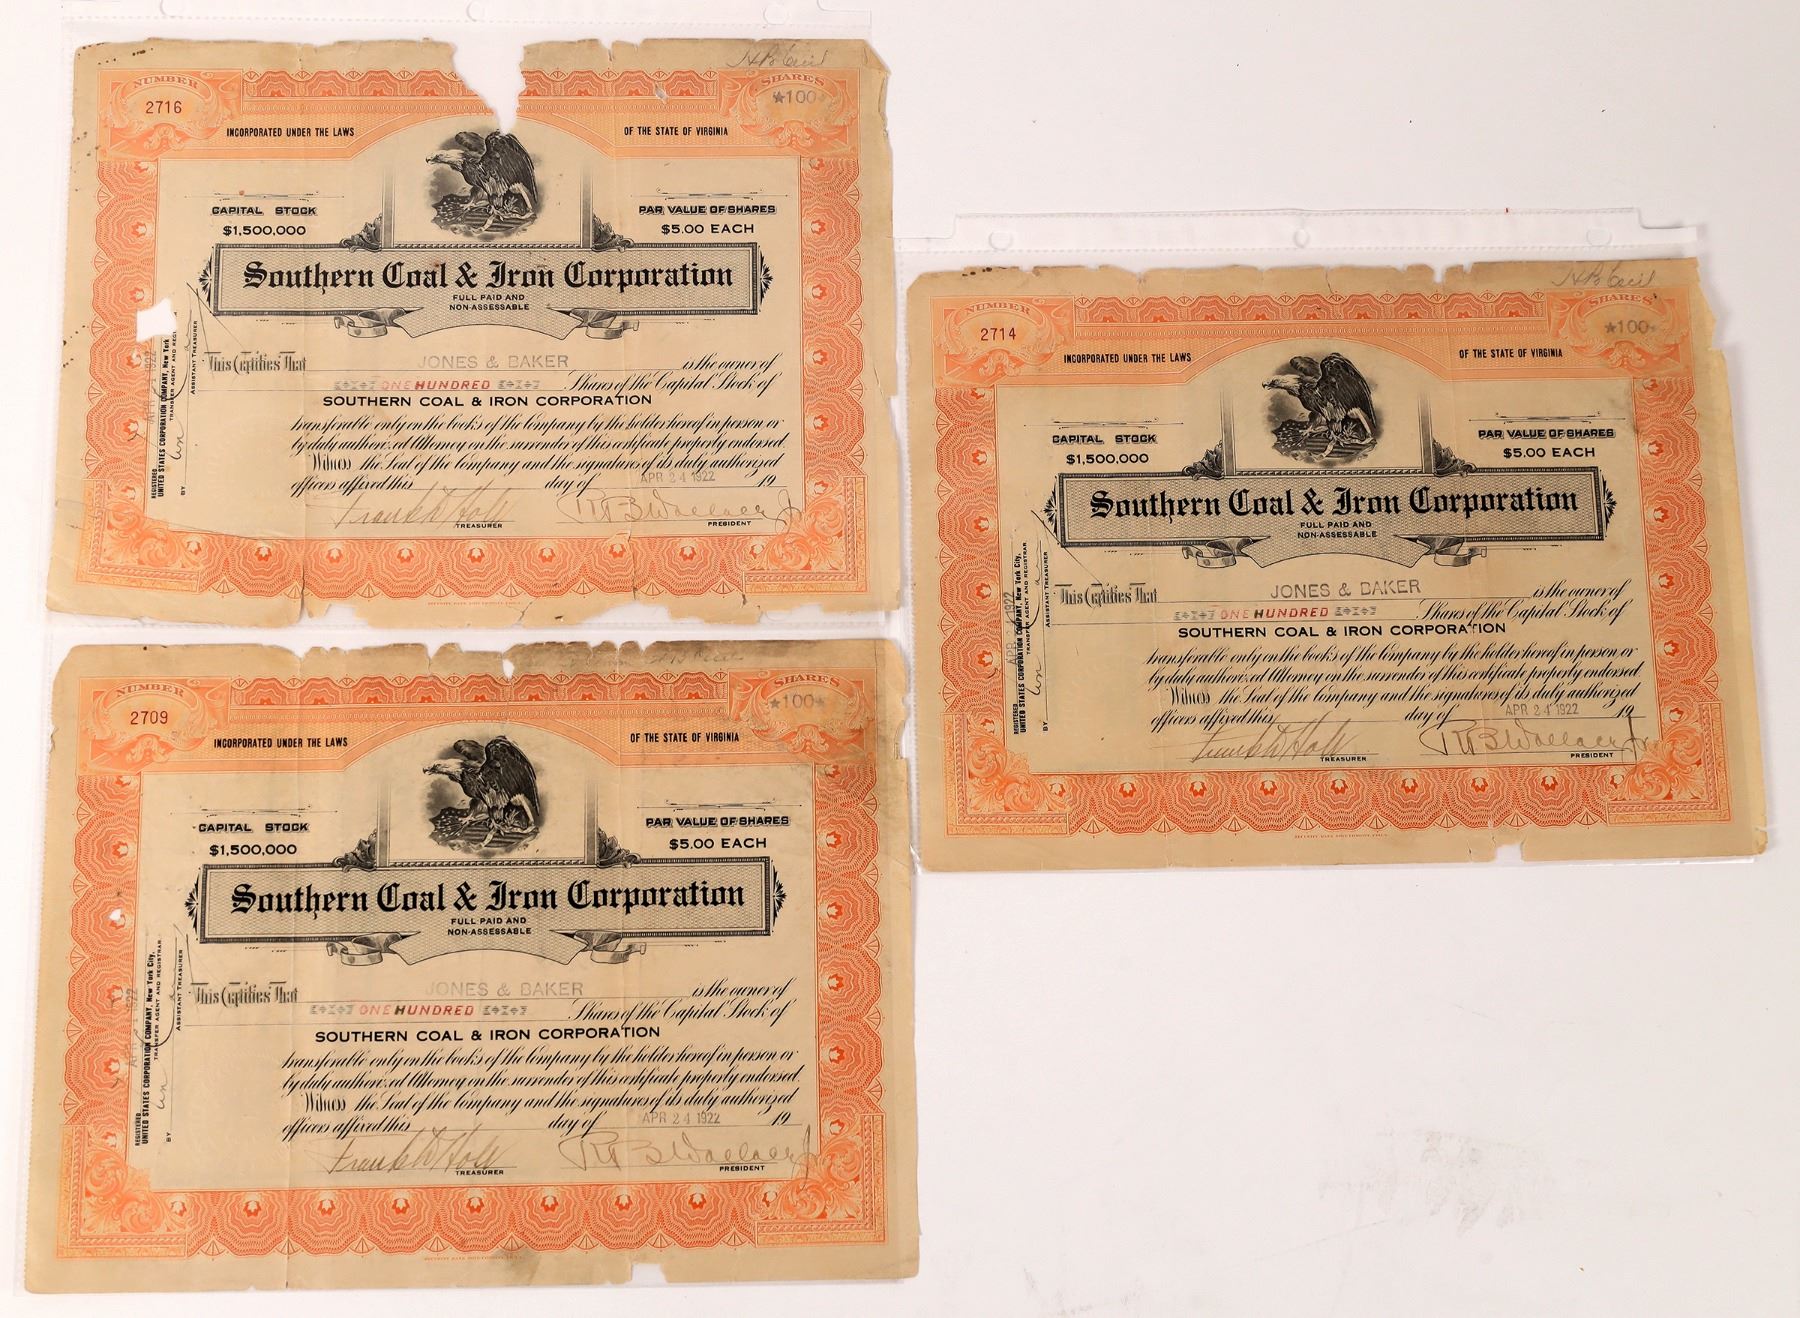 H B Cecil
NUMBER
2716
SHARES
★100★
INCORPORATED UNDER THE LAWS
OF THE STATE OF VIRGINIA
CAPITAL STOCK
$1,500,000
PAR VALUE OF SHARES
$5.00 EACH
Southern Coal & Iron Corporation
FULL PAID AND
NON-ASSESSABLE
This Certifies That JONES & BAKER is the owner of
ONE HUNDRED Shares of the Capital Stock of
SOUTHERN COAL & IRON CORPORATION
transferable only on the books of the Company by the holder hereof in person or
by duly authorized Attorney on the surrender of this certificate properly endorsed.
Witness the Seal of the Company and the signatures of its duly authorized
officers affixed this day of APR 24 1922 19
Frank D Holt
TREASURER
R B Wallace Jr
PRESIDENT
UNITED STATES CORPORATION COMPANY, New York
TRANSFER AGENT AND REGIST
REGISTERED
BY
ASSISTANT TREASURER
1922
NUMBER
2709
SHARES
★100★
INCORPORATED UNDER THE LAWS
OF THE STATE OF VIRGINIA
CAPITAL STOCK
$1,500,000
PAR VALUE OF SHARES
$5.00 EACH
Southern Coal & Iron Corporation
FULL PAID AND
NON-ASSESSABLE
This Certifies That JONES & BAKER is the owner of
ONE HUNDRED Shares of the Capital Stock of
SOUTHERN COAL & IRON CORPORATION
transferable only on the books of the Company by the holder hereof in person or
by duly authorized Attorney on the surrender of this certificate properly endorsed.
Witness the Seal of the Company and the signatures of its duly authorized
officers affixed this day of APR 24 1922 19
Frank D Holt
TREASURER
R B Wallace Jr
PRESIDENT
REGISTERED
UNITED STATES CORPORATION COMPANY, New York City,
TRANSFER AGENT AND REGISTRAR
BY
ASSISTANT TREASURER
1922
H B Cecil
NUMBER
2714
SHARES
★100★
INCORPORATED UNDER THE LAWS
OF THE STATE OF VIRGINIA
CAPITAL STOCK
$1,500,000
PAR VALUE OF SHARES
$5.00 EACH
Southern Coal & Iron Corporation
FULL PAID AND
NON-ASSESSABLE
This Certifies That JONES & BAKER is the owner of
ONE HUNDRED Shares of the Capital Stock of
SOUTHERN COAL & IRON CORPORATION
transferable only on the books of the Company by the holder hereof in person or
by duly authorized Attorney on the surrender of this certificate properly endorsed.
Witness the Seal of the Company and the signatures of its duly authorized
officers affixed this day of APR 24 1922 19
Frank D Holt
TREASURER
R B Wallace Jr
PRESIDENT
REGISTERED
UNITED STATES CORPORATION COMPANY, New York City,
TRANSFER AGENT AND REGISTRAR
BY
ASSISTANT TREASURER
APR 1922